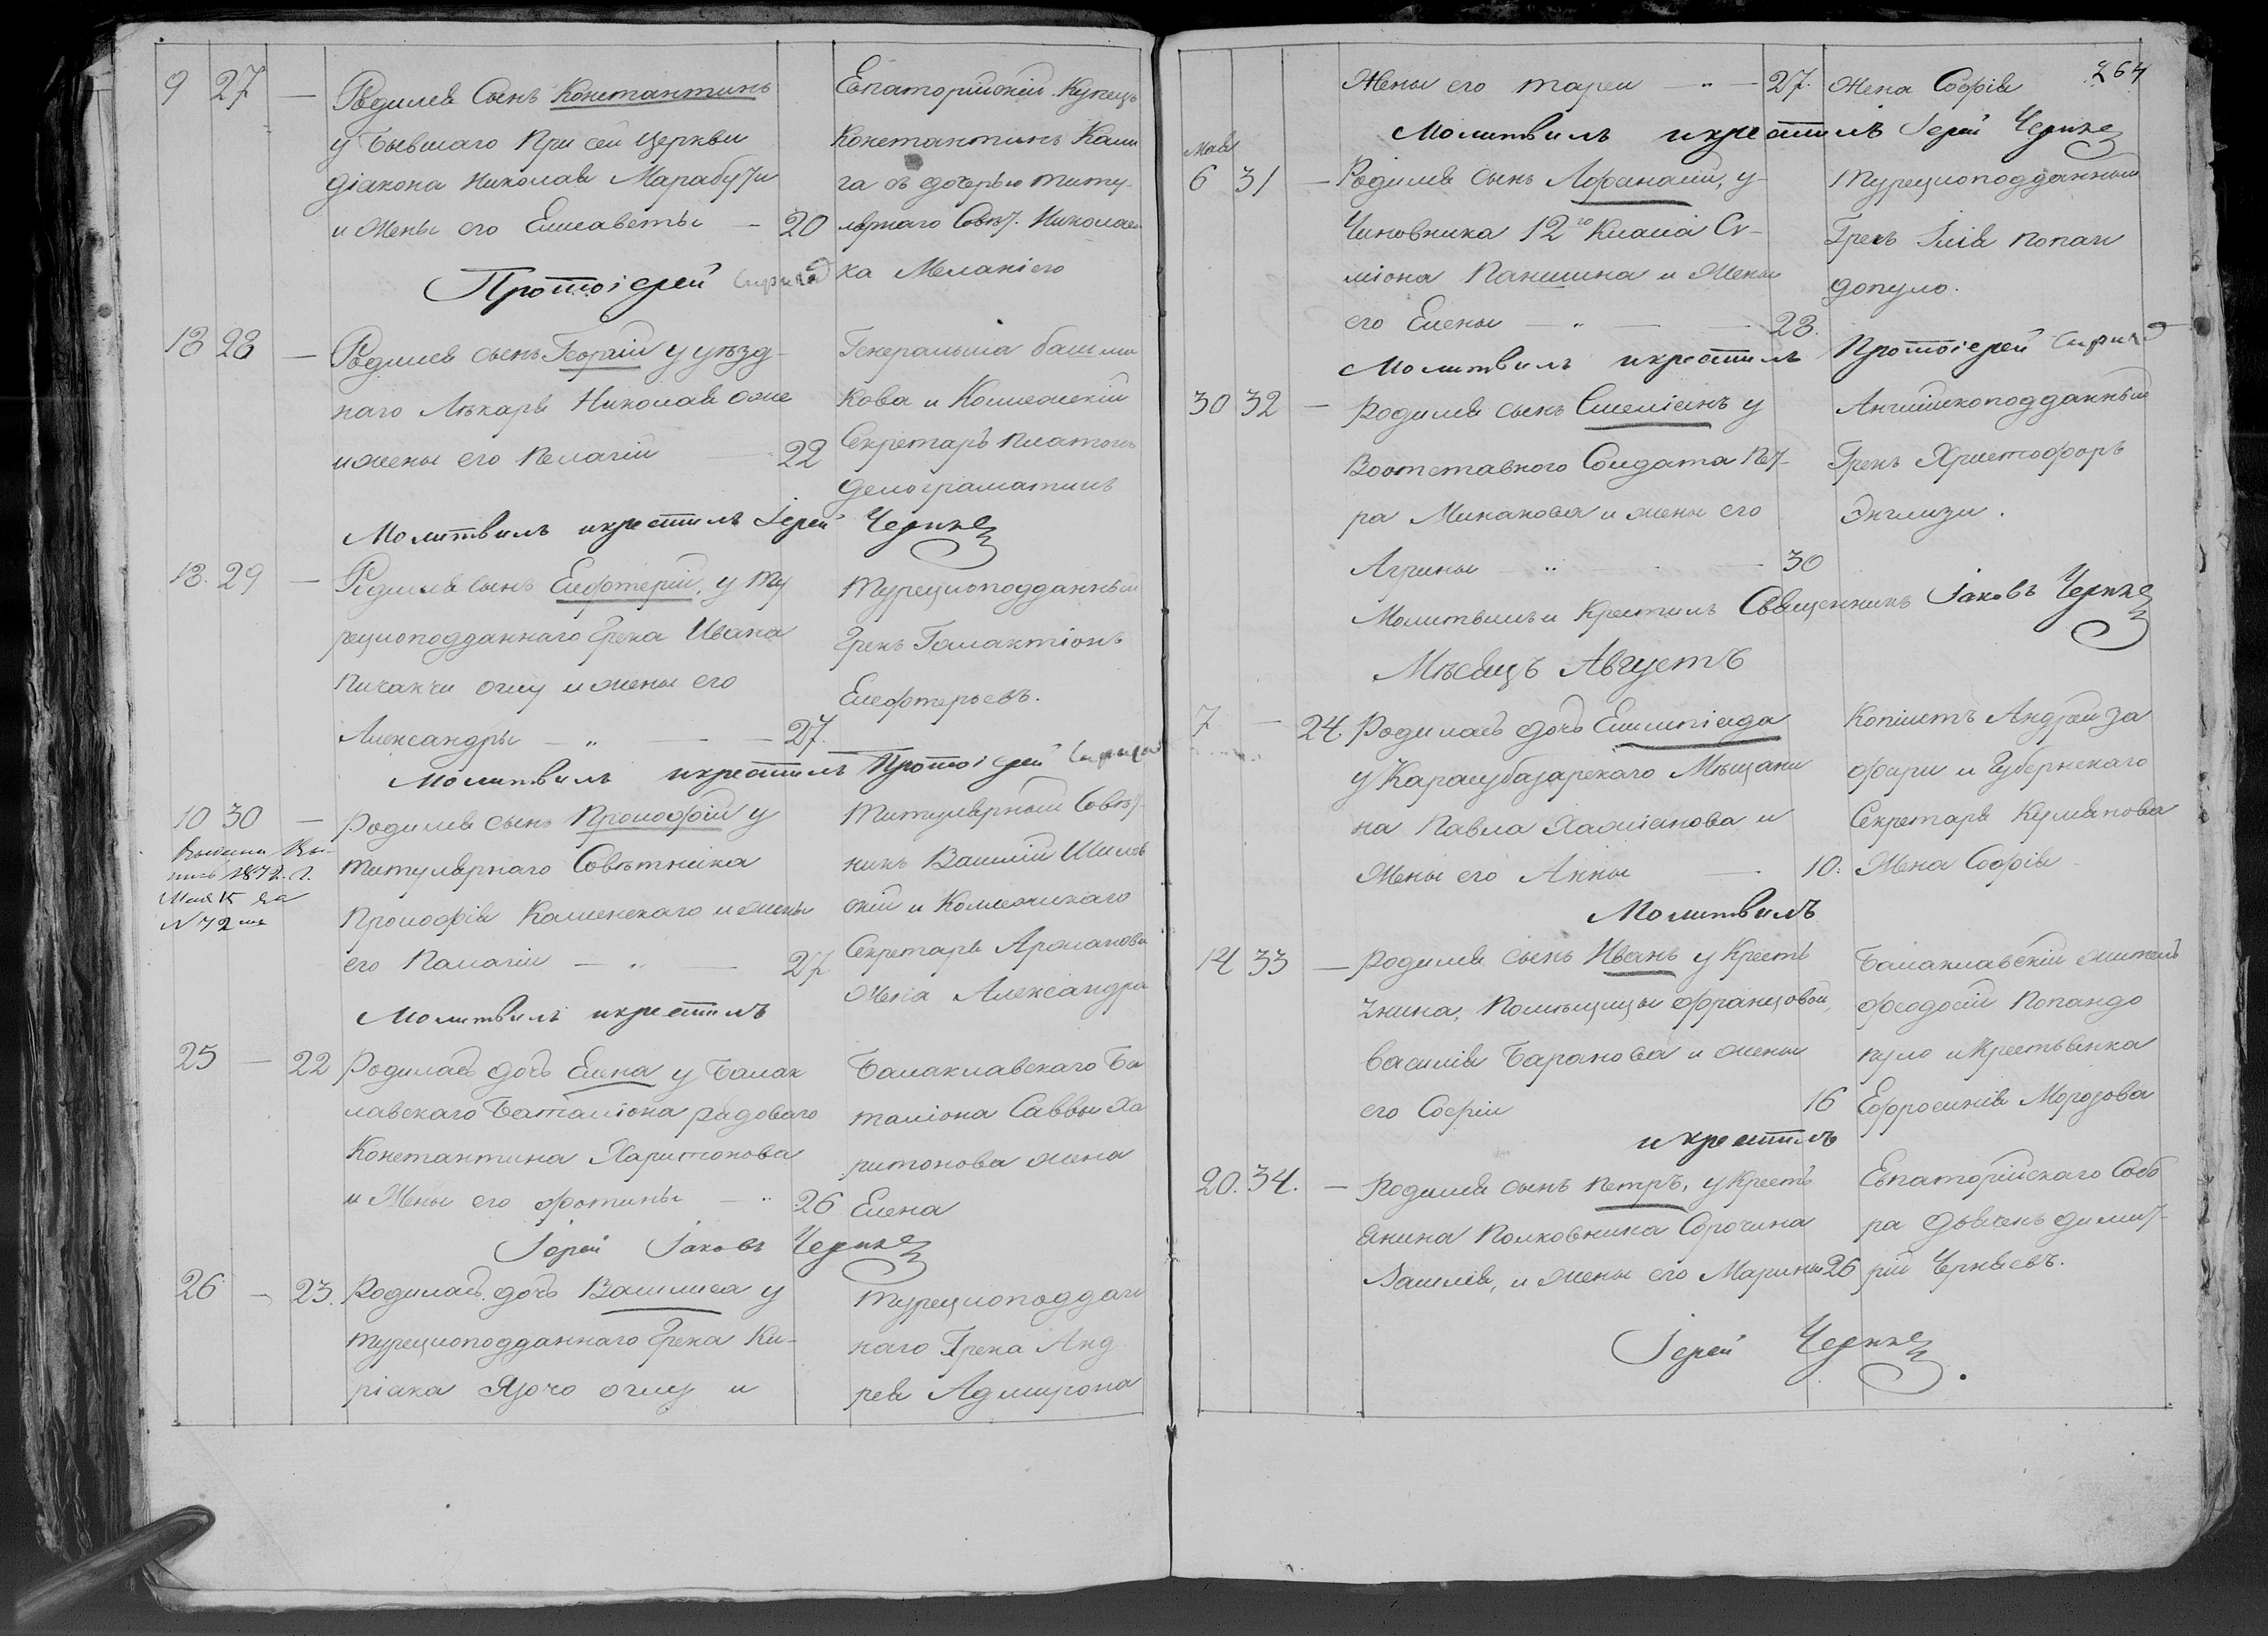 9 27 — Родился Сынъ Константинъ
у бывшаго При сей Церкви
діакона Николая Марабути
и жены его Елисаветы — 20
Евпаторійскій Купецъ
Константинъ Каши
га съ дочерью титу-
лярнаго Совѣт. Николае
ка Меланіею
Протоіерей
18 28 — Родился сынъ Георгій у уѣзд-
наго Лѣкаря Николая
и жены его Пелагіи — 22
Генеральша башма
кова и Коллежскій
Секретарь Платонъ
Делограматикъ
Молитвилъ и крестилъ Іерей Черпке
18. 29 — Родился сынъ Елефтерій, у Ту
рецкоподданнаго Грека Ивана
Пичакчи оглу и жены его
Александры — „ — 27.
Турецкоподданный
Грекъ Галактіонъ
Елефтерьевъ.
Молитвилъ и крестилъ Протоіерей
10 30 — Родился сынъ Прокофій у
титулярнаго Совѣтника
Прокофія Каменскаго и жены
его Палагіи — „ — 27
1872. г.
Мая 15 за
№ 72 мъ
Титулярный Совѣт-
никъ Василій Шилов
скій и Коллежскаго
Секретаря Арланова
жена Александра
Молитвилъ и крестилъ
25 — 22 Родилась дочь Елена у Балак
лавскаго Баталіона рядоваго
Константина Харитонова
и Жены его Фотины — „ 26
Балаклавскаго Ба
таліона Саввы Ха
ритонова жена
Елена
Іерей Іаковъ Черпке
26 — 23. Родилась дочь Василиса у
турецкоподданнаго Грека Ки-
ріака Язочо оглу и
Турецкоподдан
наго Грека Анд
рея Адмирона
264
Жены его Мареи — „ — 27. Жена Софія
Молитвилъ и крестилъ Іерей Черпке
Мая
6 31 — Родился сынъ Афанасій, у
Чиновника 12го Класса Си-
міона Паншина и Жены
его Елены — „ — 28.
Турецкоподданный
Грекъ Илія Попан
допуло.
Молитвилъ и крестилъ Протоіерей
30 32 — Родился сынъ Емеліанъ у
Воотставного Солдата Пет-
ра Минакова и жены его
Агрины — „ — 30
Англійскоподданный
Грекъ Христофоръ
Энглизи.
Молитвилъ и Крестилъ Священникъ Іаковъ Черпке
Мѣсяцъ Августъ
7 — 24. Родилась дочь Елимпіада
у Карасубазарскаго Мѣщани
на Павла Хаджіанова и
Жены его Анны — 10.
Копіистъ Андрей За
фири и Губернскаго
Секретаря Кулятова
Жена Софія
Молитвилъ
14 33 — Родился сынъ Иванъ у Кресть
янина, Помѣщицы Францовой,
Василія Баранова и жены
его Софіи 16
Балаклавскій житель
Феодосій Попандо
пуло и Крестьянка
Ефросинія Морозова
и крестилъ
20. 34. — Родился сынъ Петръ, у Кресть
янина Полковника Сорочина
Василія, и жены его Марины 26
Евпаторійскаго Собо
ра дьячекъ Димит-
рій Чернявъ.
Іерей Черпке.